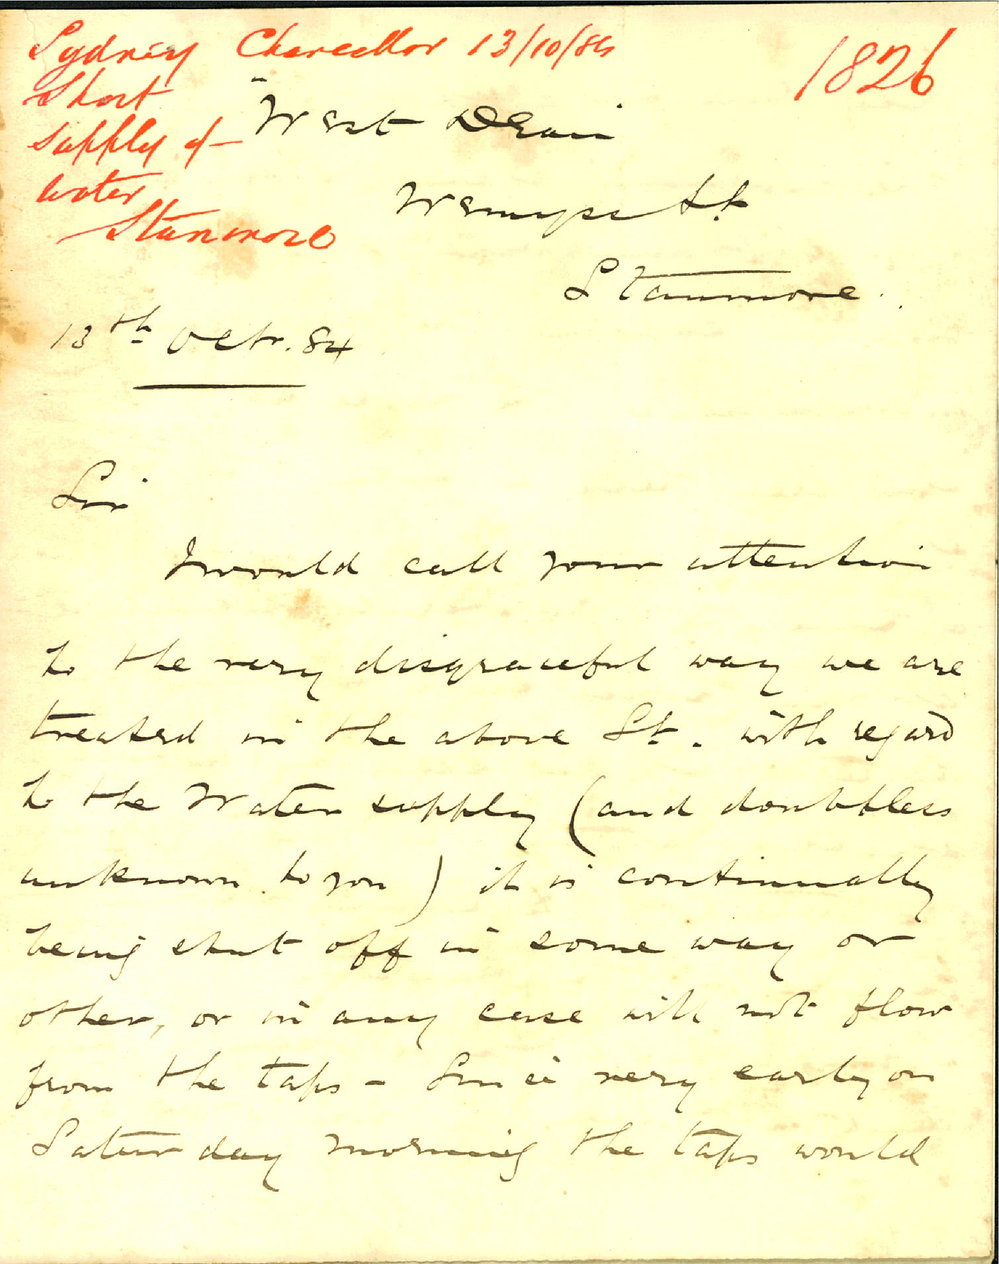 Sydney Chancellor 13/10/84
1826
Short
supply of
water
Stanmore
"West Dean
Wemyss St
Stanmore.
13th Octr. 84
Sir
I would call your attention
to the very disgraceful way we are
treated in the above St. with regard
to the Water supply (and doubtless
unknown to you) it is continually
being shut off in some way or
other, or in any case will not flow
from the taps - Since very early on
Saturday morning the taps would